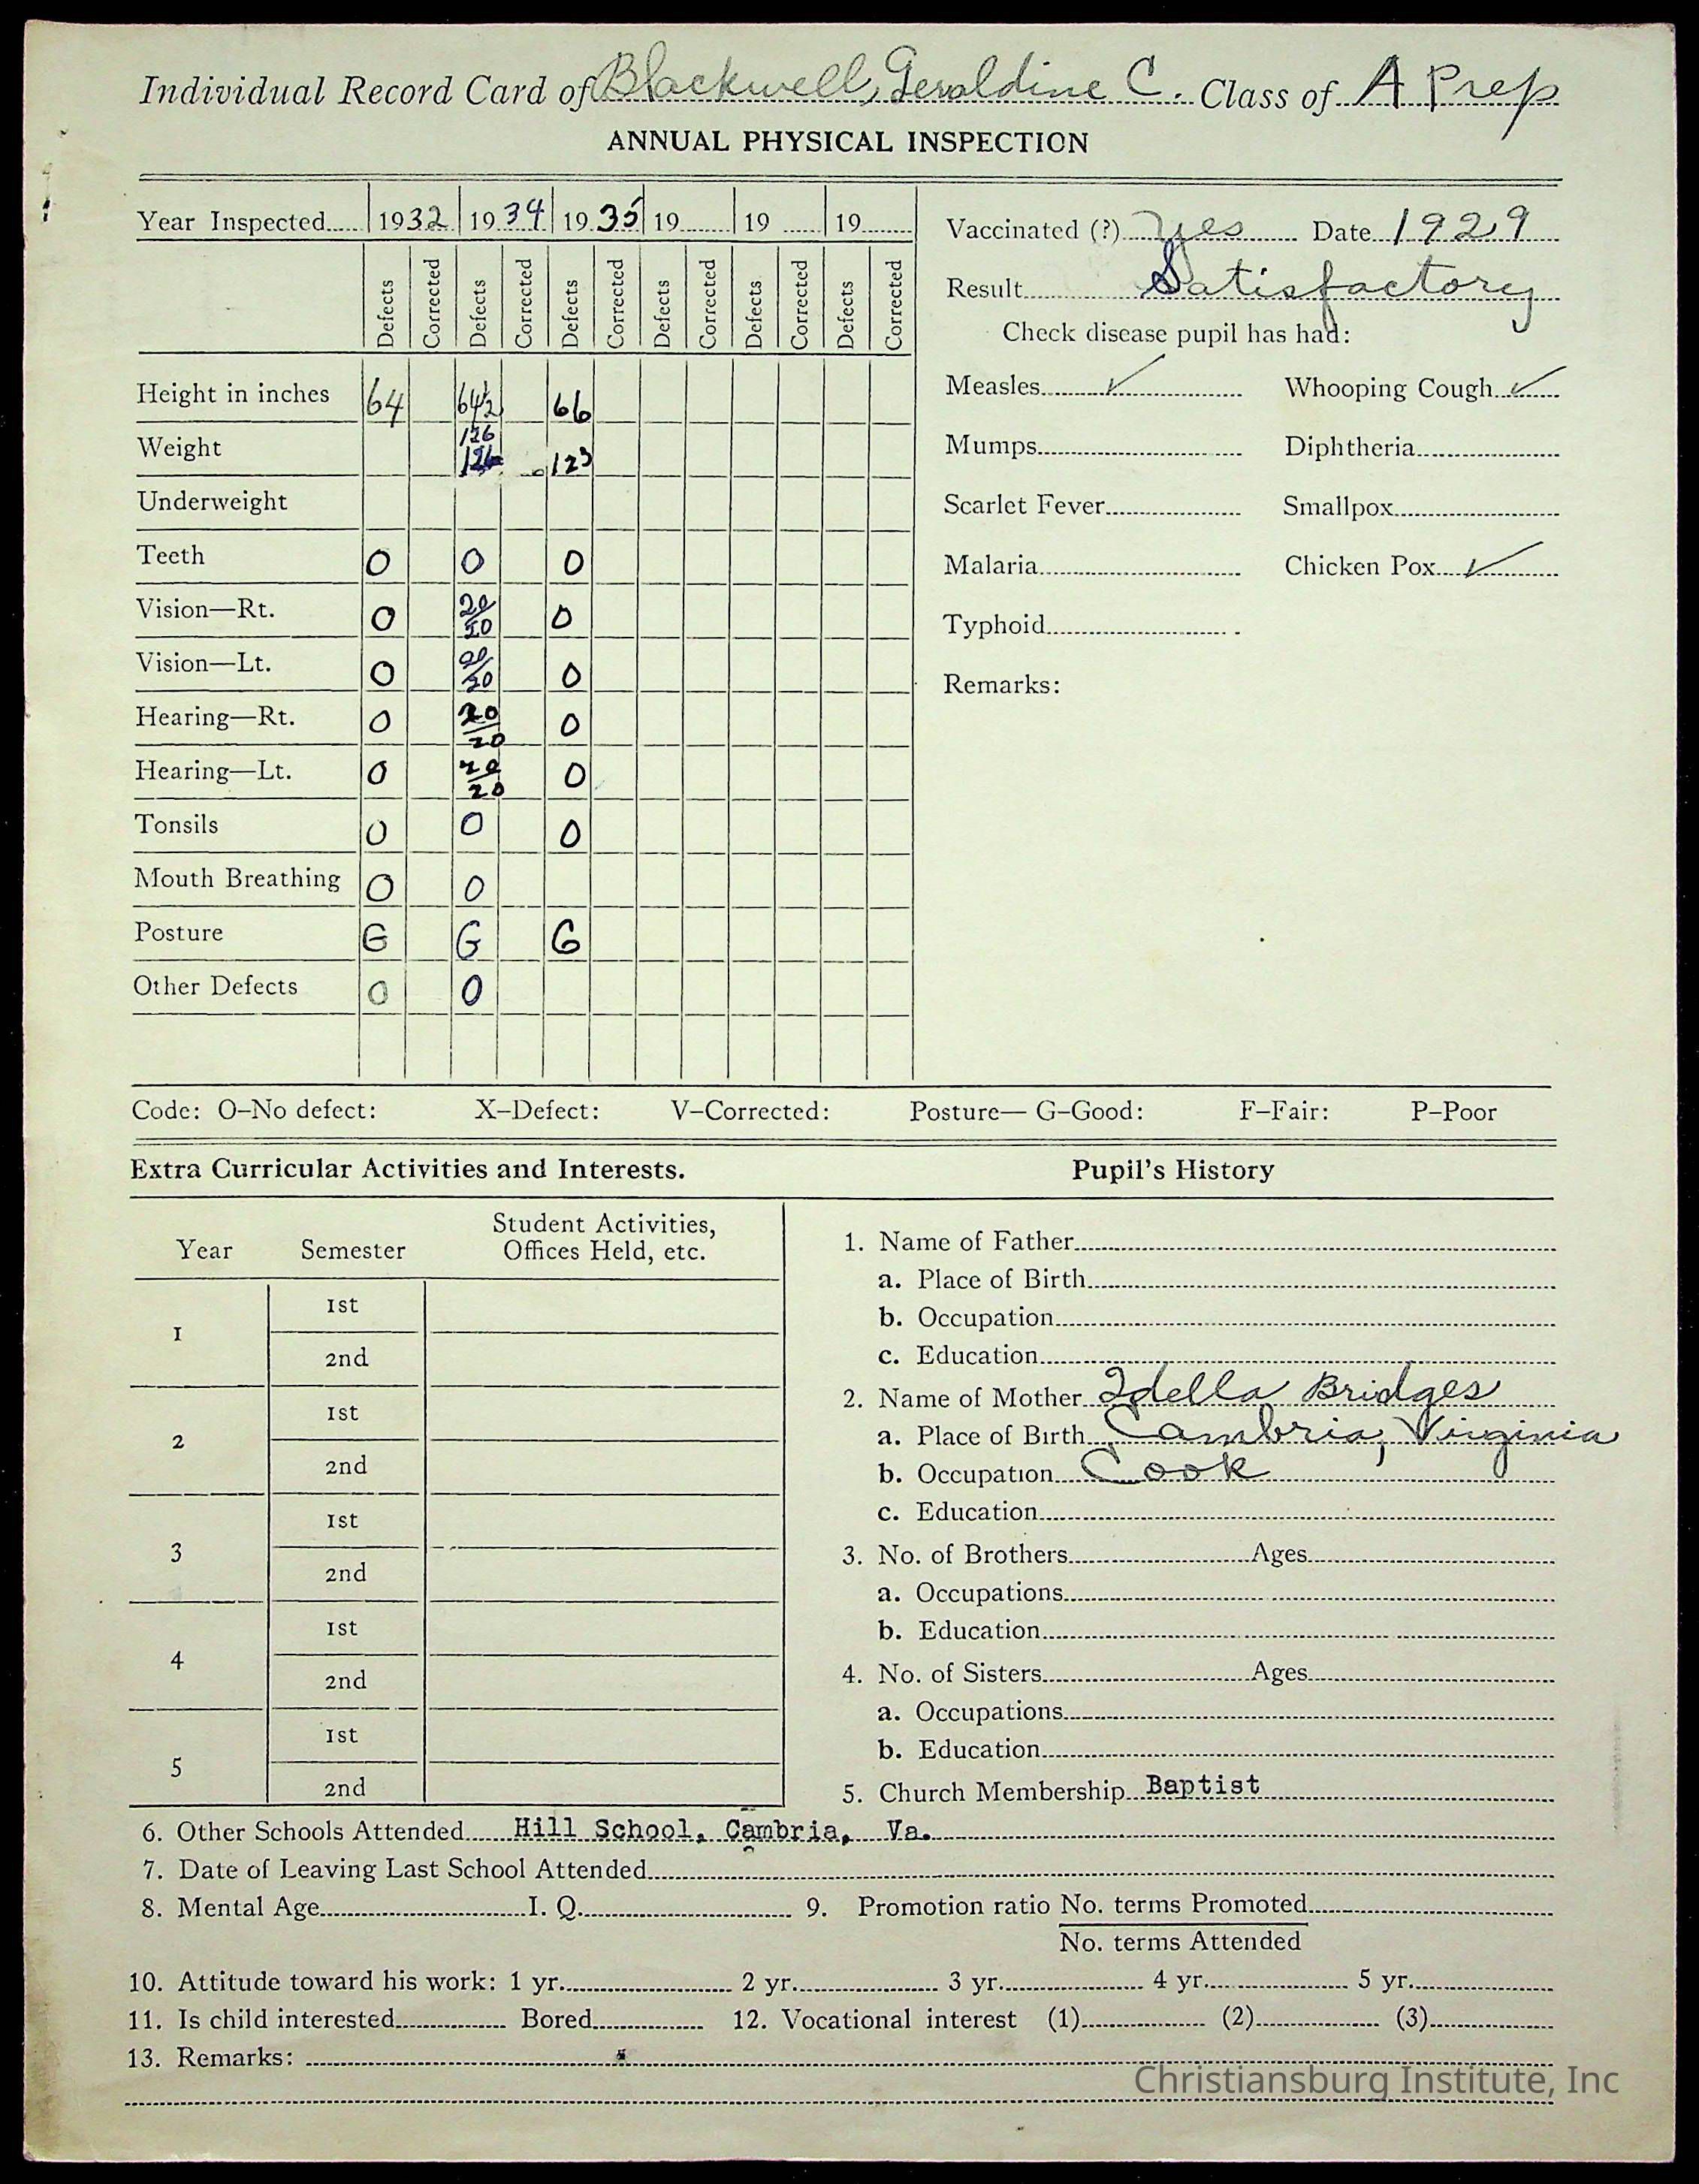 Individual Record Card of Blackwell, Geraldine C. Class of A Prep
ANNUAL PHYSICAL INSPECTION
Year Inspected 1932 1934 1935 19 19 19
Defects Corrected Defects Corrected Defects Corrected Defects Corrected Defects Corrected Defects Corrected
Height in inches 64 64½ 66
Weight 126 126 123
Underweight
Teeth 0 0 0
Vision—Rt. 0 20/20 0
Vision—Lt. 0 20/20 0
Hearing—Rt. 0 20/20 0
Hearing—Lt. 0 20/20 0
Tonsils 0 0 0
Mouth Breathing 0 0
Posture G G G
Other Defects 0 0
Vaccinated (?) Yes Date 1929
Result Satisfactory
Check disease pupil has had:
Measles ✓ Whooping Cough ✓
Mumps Diphtheria
Scarlet Fever Smallpox
Malaria Chicken Pox ✓
Typhoid
Remarks:
Code: O–No defect: X–Defect: V–Corrected: Posture— G–Good: F–Fair: P–Poor
Extra Curricular Activities and Interests.
Year Semester Student Activities, Offices Held, etc.
1 1st
2nd
2 1st
2nd
3 1st
2nd
4 1st
2nd
5 1st
2nd
Pupil's History
1. Name of Father
a. Place of Birth
b. Occupation
c. Education
2. Name of Mother Idella Bridges
a. Place of Birth Cambria, Virginia
b. Occupation Cook
c. Education
3. No. of Brothers Ages
a. Occupations
b. Education
4. No. of Sisters Ages
a. Occupations
b. Education
5. Church Membership Baptist
6. Other Schools Attended Hill School, Cambria, Va.
7. Date of Leaving Last School Attended
8. Mental Age I. Q. 9. Promotion ratio No. terms Promoted
No. terms Attended
10. Attitude toward his work: 1 yr. 2 yr. 3 yr. 4 yr. 5 yr.
11. Is child interested Bored 12. Vocational interest (1) (2) (3)
13. Remarks:
Christiansburg Institute, Inc